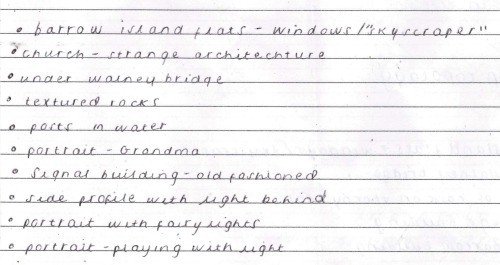 • barrow island flats - windows/"skyscraper"
• church - strange architechture
• under walney bridge
• textured rocks
• posts in water
• portrait - Grandma
• Signal building - old fashioned
• side profile with light behind
• portrait with fairy lights
• portrait - playing with light